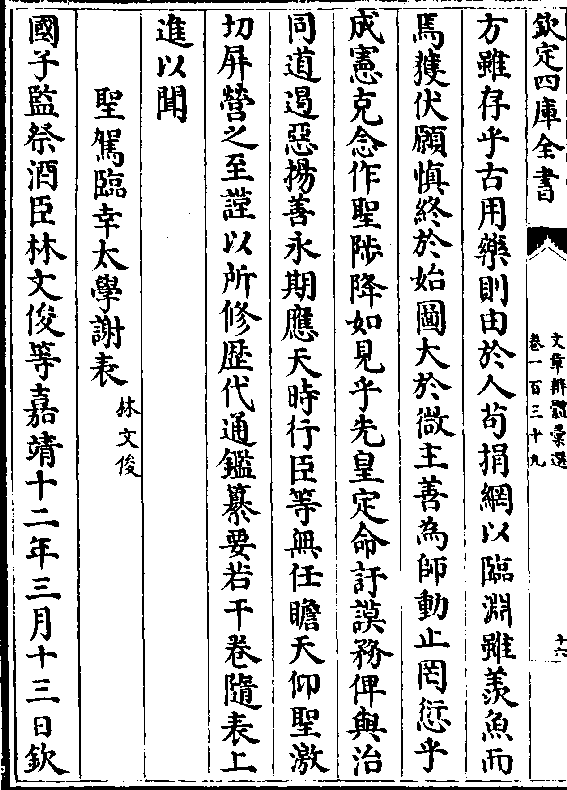 欽定四庫全書
文章辨體彙選
卷一百三十九
十六
方雖存乎古用藥則由於人苟捐網以臨淵雖羨魚而
焉獲伏願慎終於始圖大於微主善為師動止罔愆乎
成憲克念作聖陟降如見乎先皇定命訏謨務俾與治
同道遏惡揚善永期應天時行臣等無任瞻天仰聖激
切屏營之至謹以所修歴代通鑑纂要若干卷隨表上
進以聞
聖駕臨幸太學謝表
林文俊
國子監祭酒臣林文俊等嘉靖十二年三月十三日欽